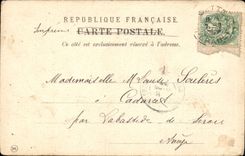 RÉPUBLIQUE FRANÇAISE
Imprimé
CARTE POSTALE
Ce côté est exclusivement réservé à l'adresse.
Mademoiselle M. Louise
à Cadarcet
par Labastide de Sérou
Ariège